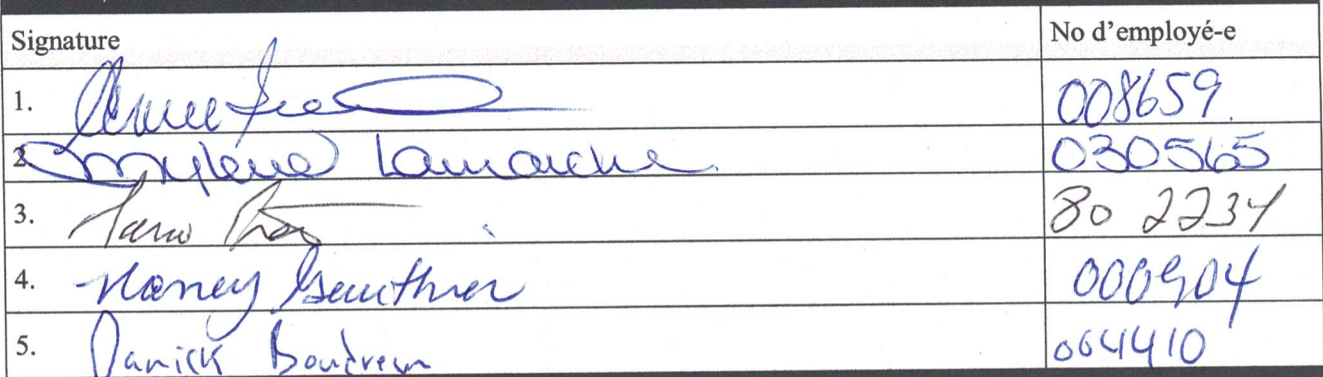 Signature No d'employé-e
1. 008659.
2. Mylène Lamarche 030565
3. 80 2234
4. Nancy Gauthier 000904
5. Danick Boudreau 064410